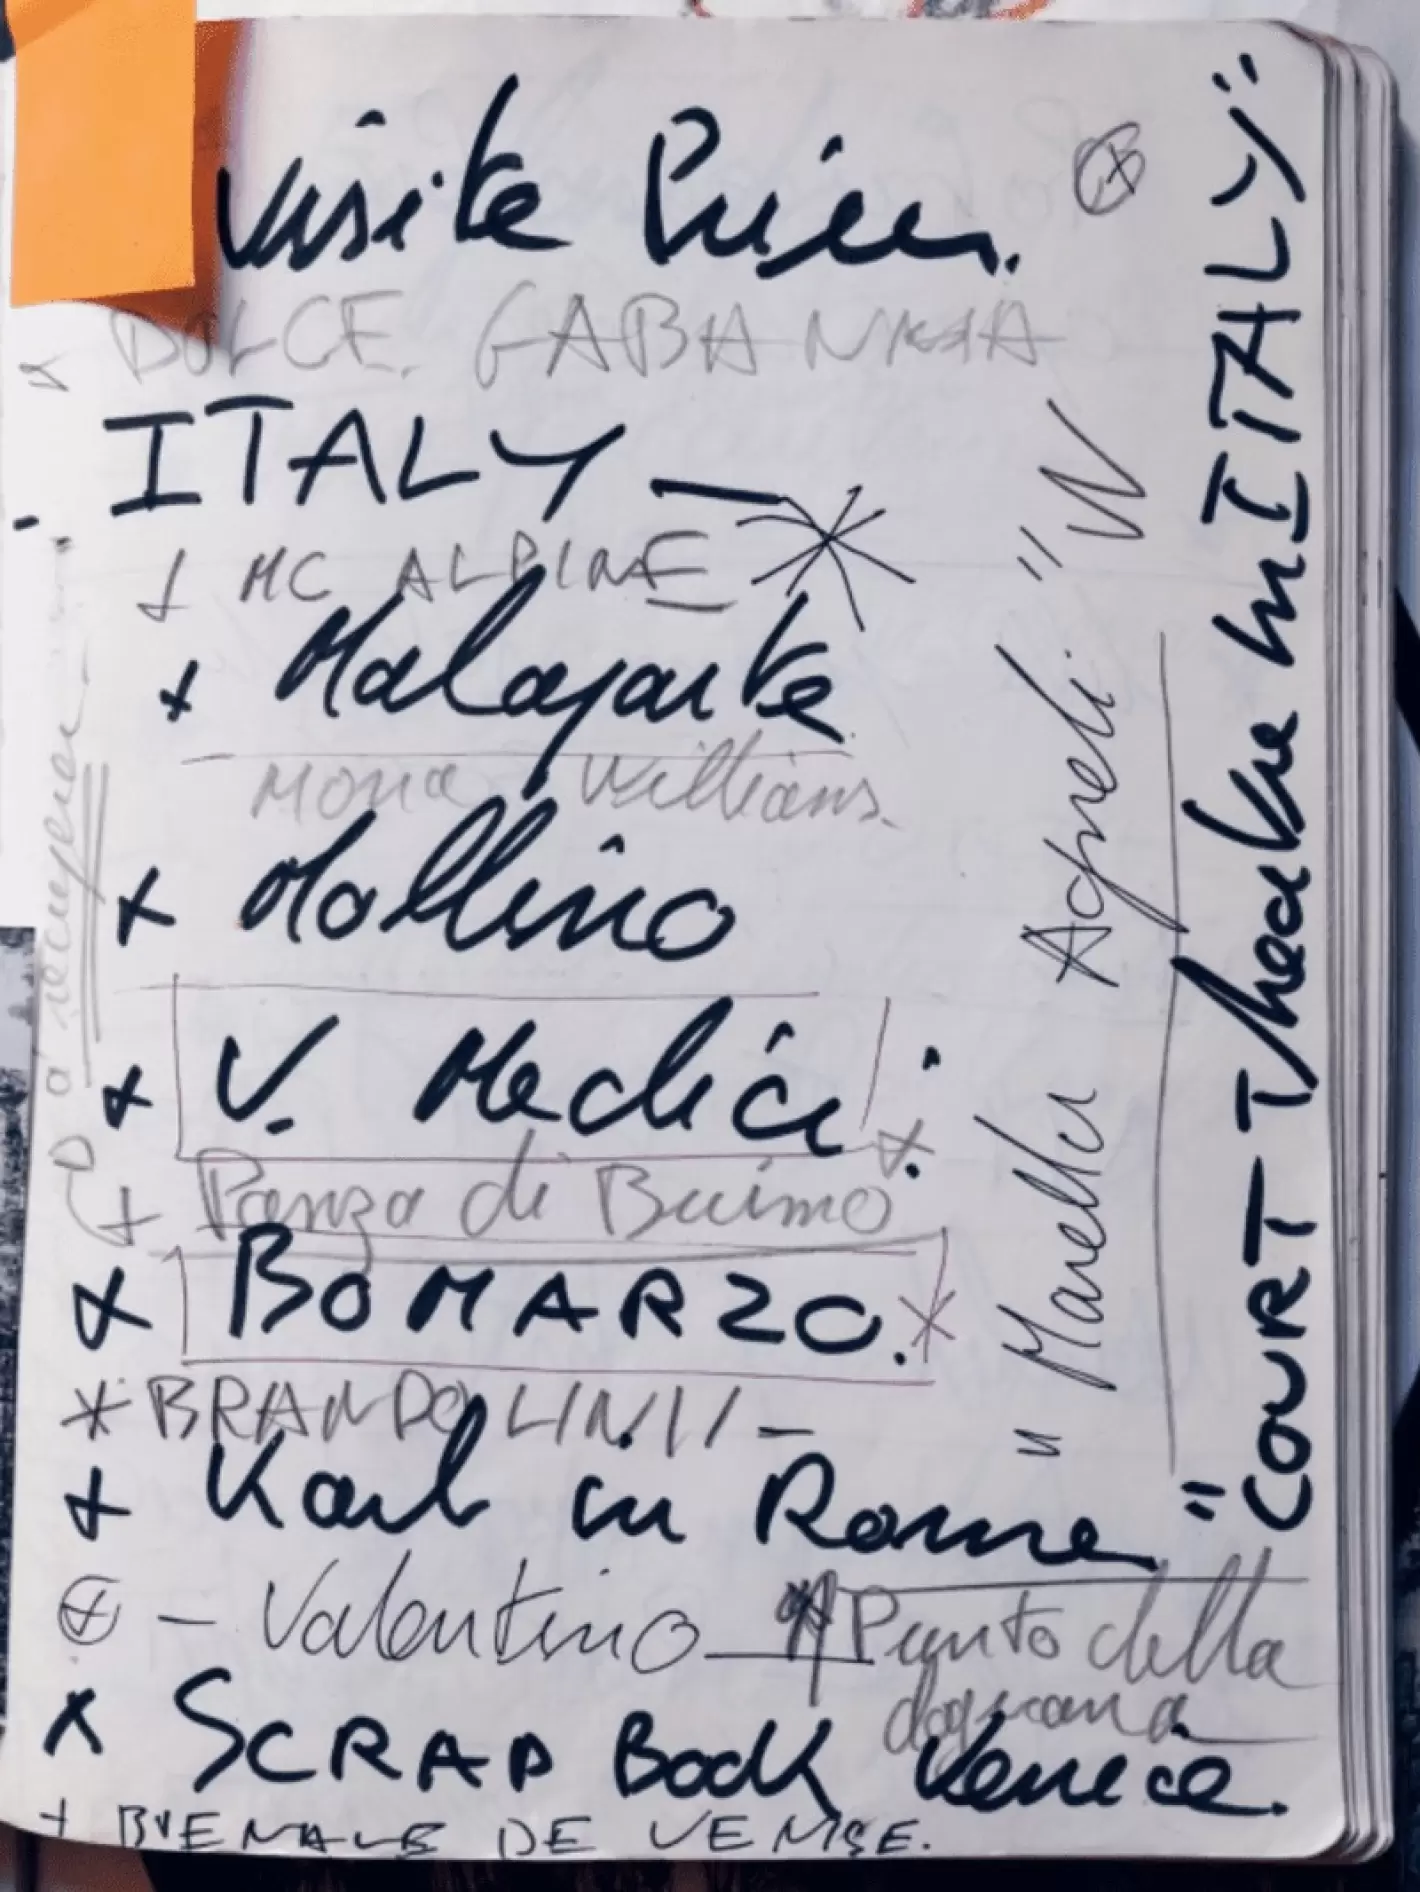 Visite Privée.
DOLCE. GABANNA
ITALY —
+ MC ALPINE
+ Malaparte
Mona Williams.
+ Mollino
+ V. Medici
+ Panza di Buimo
+ BOMARZO.
* BRANDOLINI —
+ Karl in Rome
+ — Valentino — Punto della
dogana
x SCRAP Book Venice.
+ BIENALE DE VENISE.
à recuperer
"Marella Agneli"
"COURT Theatre in ITALY"